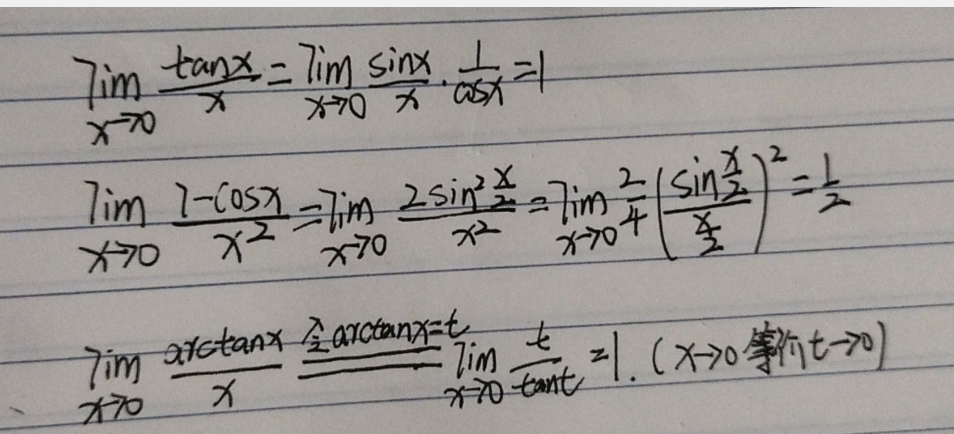 lim x→0 tanx/x = lim x→0 sinx/x · 1/cosx = 1
lim x→0 (1-cosx)/x² = lim x→0 (2sin²(x/2))/x² = lim x→0 2/4 (sin(x/2)/(x/2))² = 1/2
lim x→0 arctanx/x 令arctanx=t ═ lim x→0 t/tant = 1. (x→0 等价 t→0)